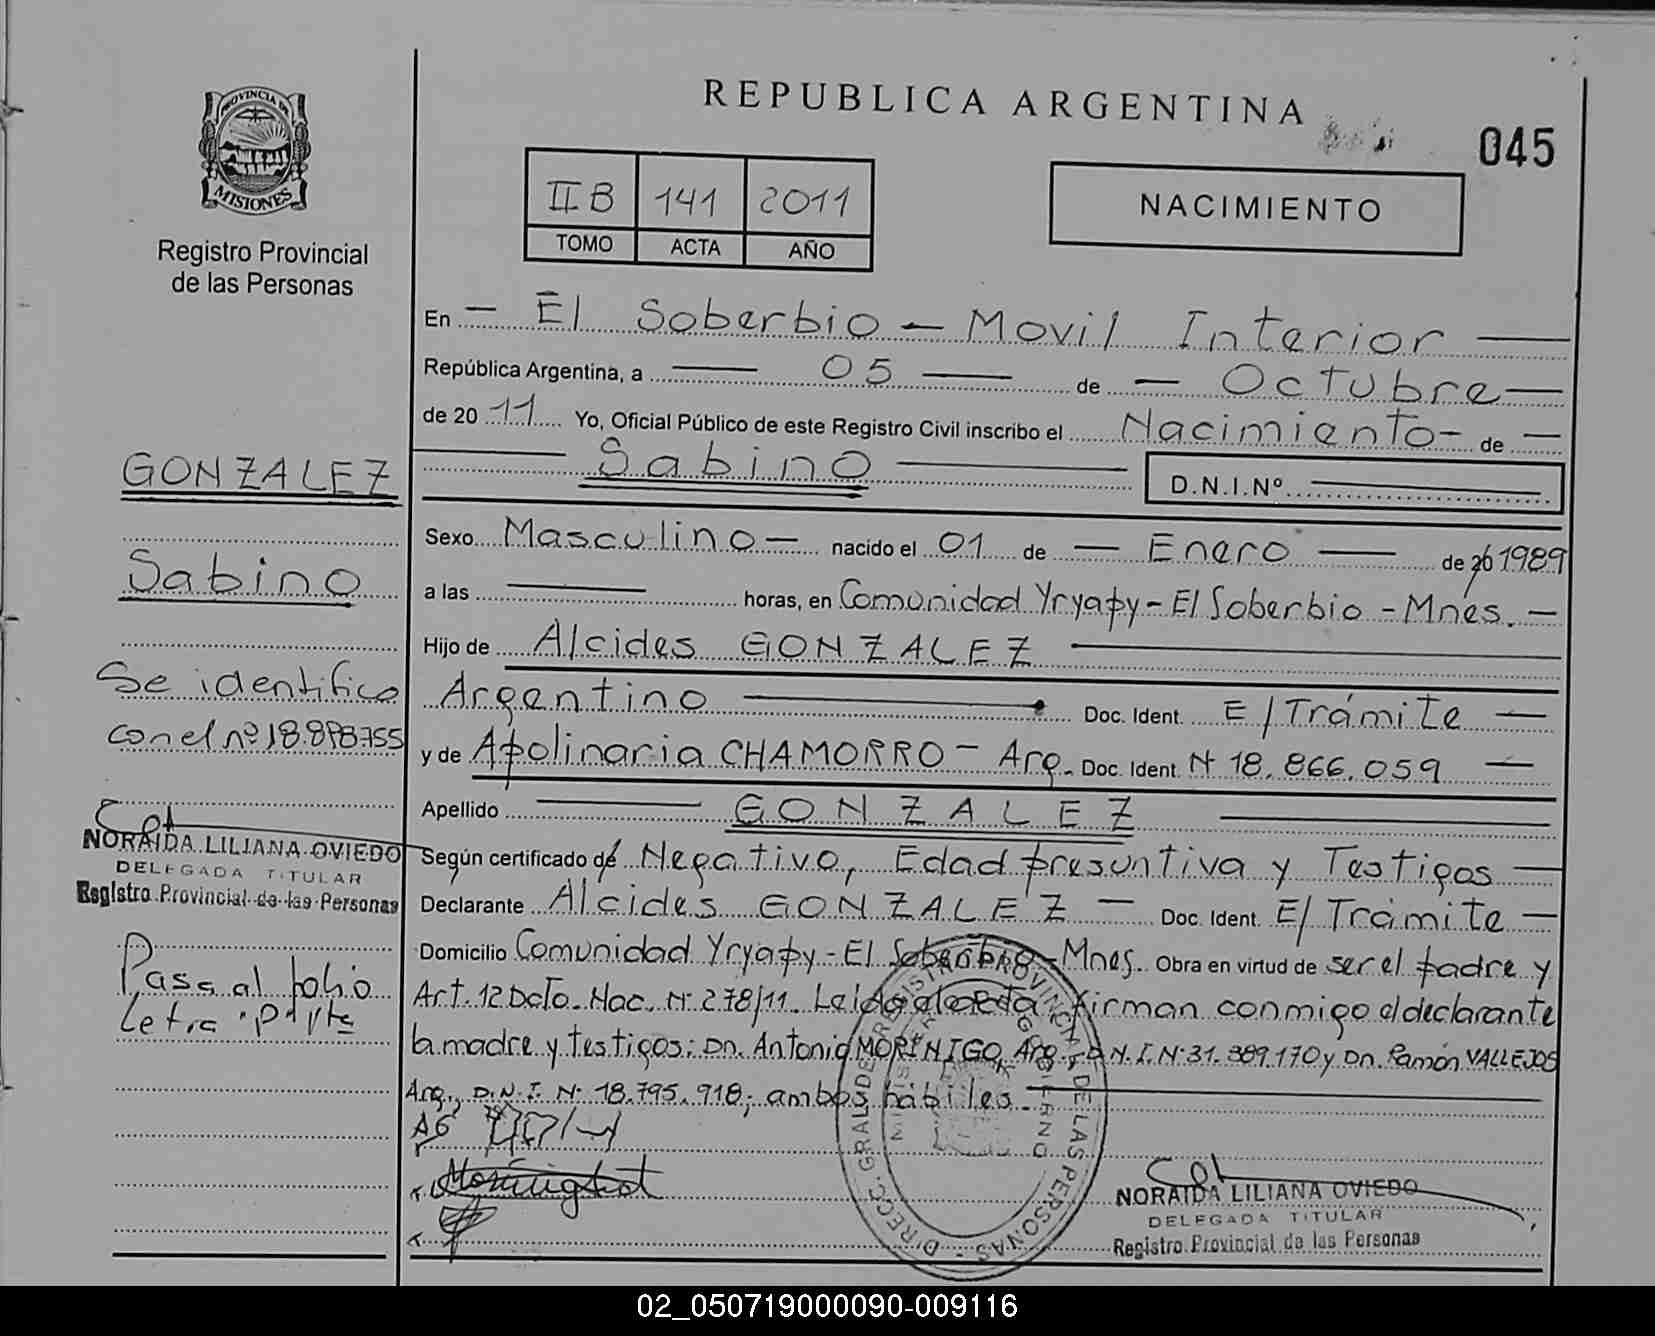 REPUBLICA ARGENTINA
045
PROVINCIA DE
MISIONES
Registro Provincial
de las Personas
II B 141 2011
TOMO ACTA AÑO
NACIMIENTO
En — El Soberbio — Movil Interior —
República Argentina, a — 05 — de — Octubre —
de 20 11 Yo, Oficial Público de este Registro Civil inscribo el Nacimiento - de —
— Sabino —
D.N.I.Nº —
Sexo Masculino — nacido el 01 de — Enero — de 20 1989
a las — horas, en Comunidad Yryapy - El Soberbio - Mnes. —
Hijo de Alcides GONZALEZ —
Argentino — Doc. Ident. E/Trámite —
y de Apolinaria CHAMORRO - Arg. Doc. Ident. Nº 18.866.059 —
Apellido — GONZALEZ —
Según certificado de Negativo, Edad presuntiva y Testigos —
Declarante Alcides GONZALEZ — Doc. Ident. E/Trámite —
Domicilio Comunidad Yryapy - El Soberbio - Mnes. Obra en virtud de ser el padre y
Art. 12 Dcto. Nac. Nº 278/11. Leida el acta, firman conmigo el declarante
la madre y testigos: Dn. Antonio MORINIGO, Arg., D.N.I. Nº 31.389.170 y Dn. Ramón VALLEJOS
Arg., D.N.I. Nº 18.795.918; ambos hábiles. —
AG
NORAIDA LILIANA OVIEDO
DELEGADA TITULAR
Registro Provincial de las Personas
GONZALEZ
Sabino
Se identifica
con el nº 18.898.755
NORAIDA LILIANA OVIEDO
DELEGADA TITULAR
Registro Provincial de las Personas
Pasa al folio
Letra
DIRECC. GRAL DE REGISTRO PROVINCIAL DE LAS PERSONAS
02_050719000090-009116